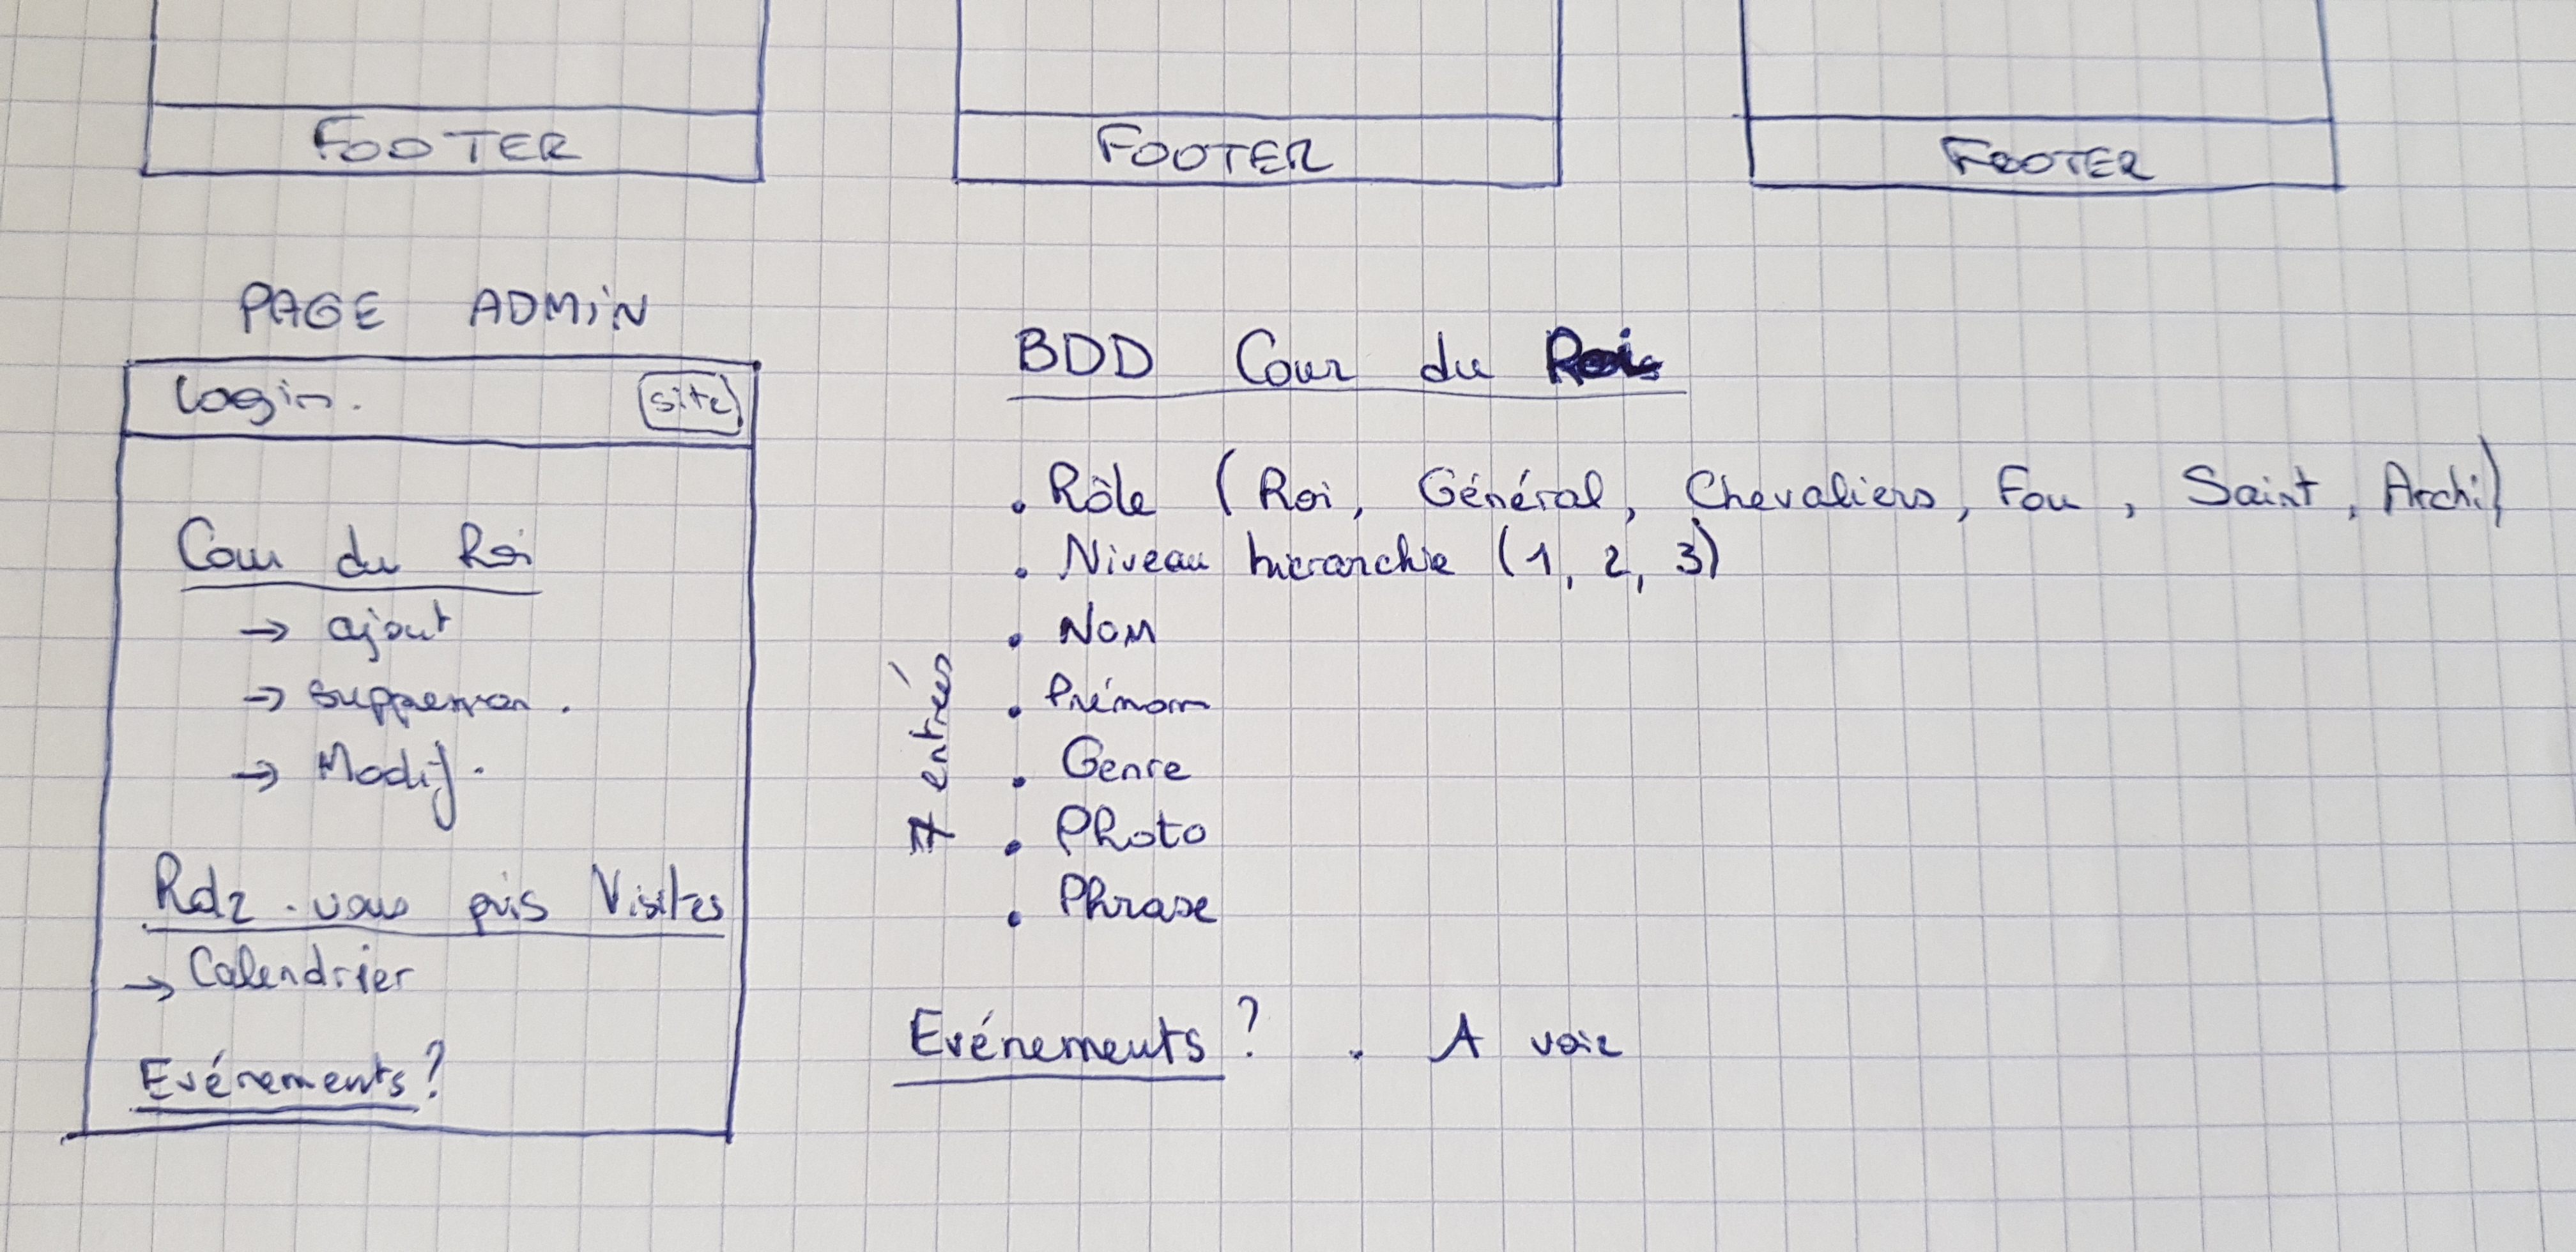 FOOTER
FOOTER
FOOTER
PAGE ADMIN
login.
site
Cour du Roi
→ ajout
→ suppression.
→ Modif.
Rdz-vous pris Visites
→ Calendrier
Evénements ?
BDD Cour du Roi
• Rôle (Roi, Général, Chevaliers, Fou, Saint, Archi)
• Niveau hierarchie (1, 2, 3)
• Nom
• Prénom
• Genre
• Photo
• Phrase
7 entrées
Evénements ? . A voir